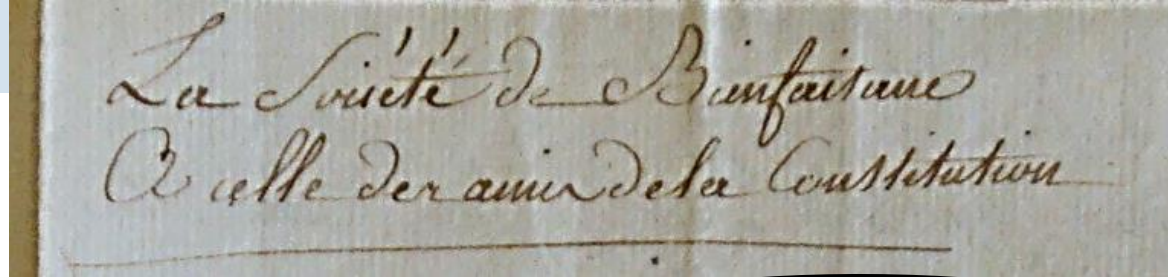 La Société de Bienfaisance
A celle des amis de la Constitution